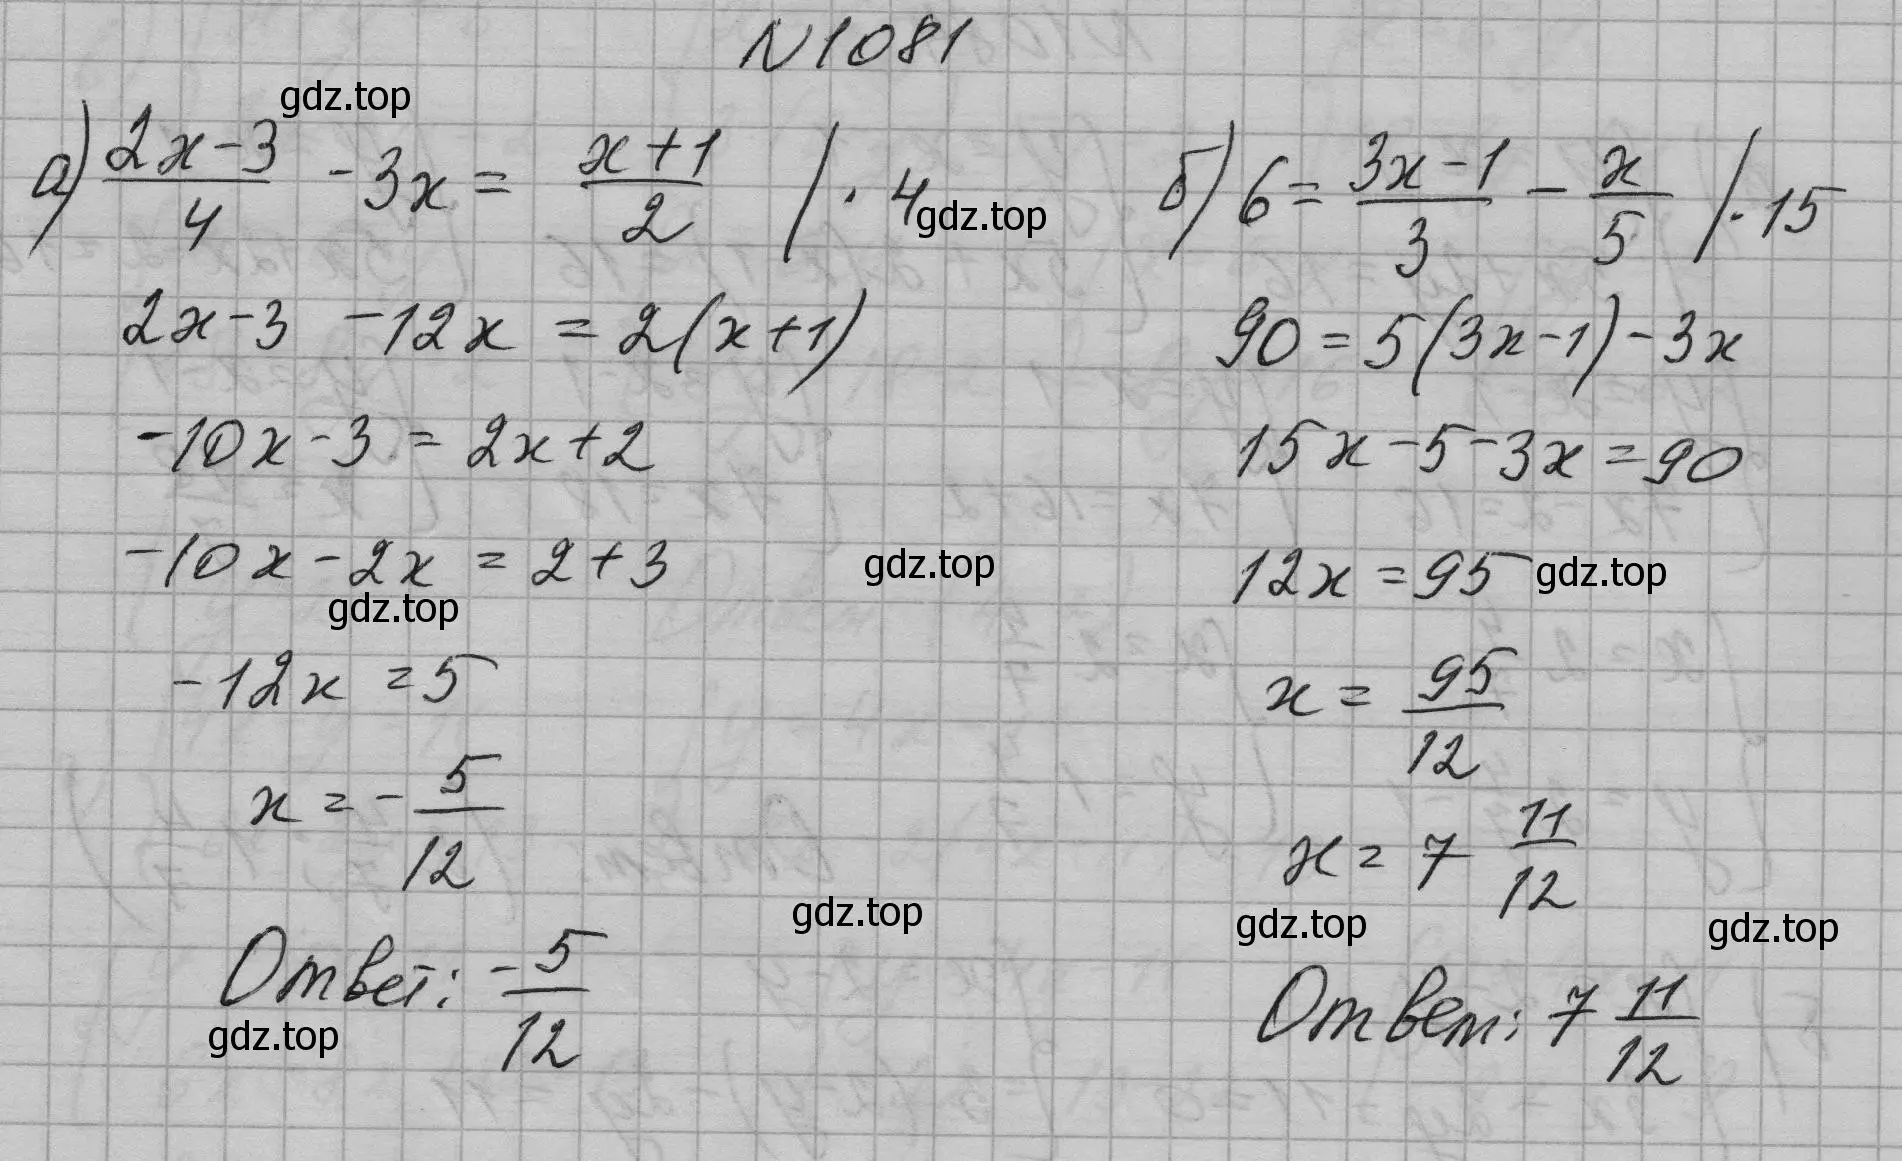 N1081
а) (2x-3)/4 - 3x = (x+1)/2 / · 4
2x-3 -12x = 2(x+1)
-10x-3 = 2x+2
-10x-2x = 2+3
-12x = 5
x = - 5/12
Ответ: - 5/12
б) 6 = (3x-1)/3 - x/5 / · 15
90 = 5(3x-1)-3x
15x-5-3x = 90
12x = 95
x = 95/12
x = 7 11/12
Ответ: 7 11/12
gdz.top
gdz.top
gdz.top
gdz.top
gdz.top
gdz.top
gdz.top
gdz.top
gdz.top